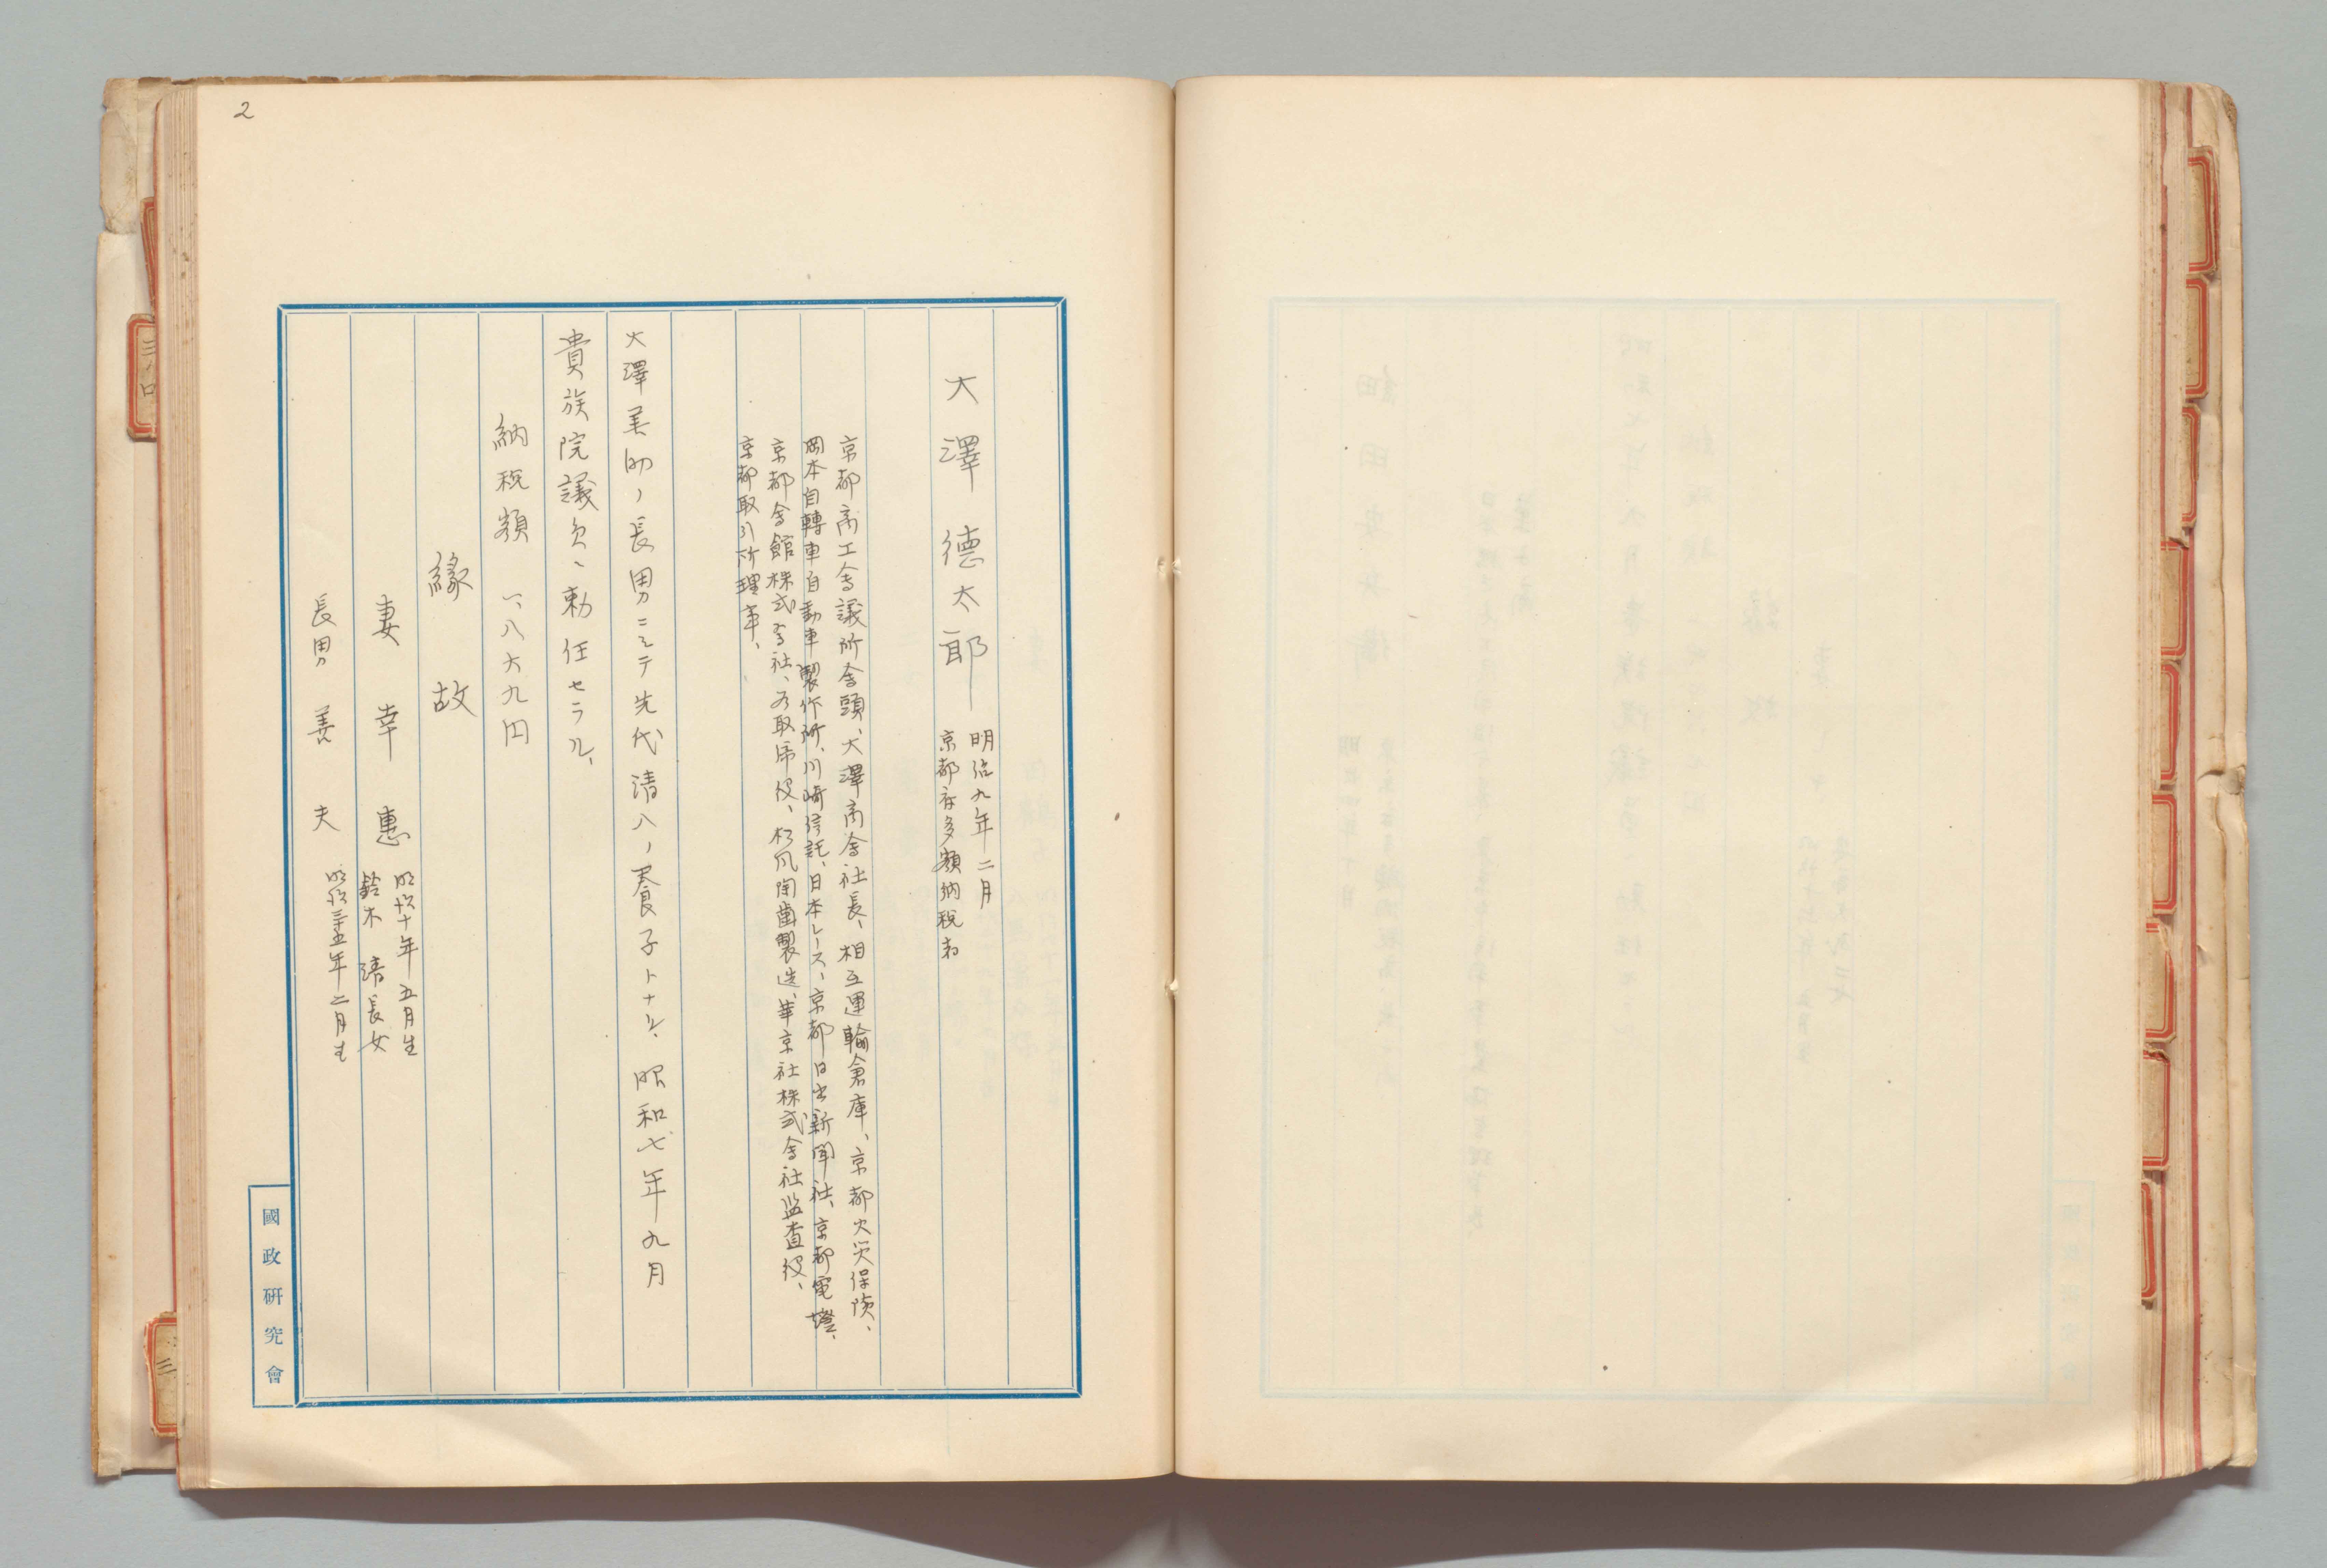 2
大澤德太郎
明治九年二月
京都府多額納税者
京都商工會議所會頭、大澤商會社長、相互運輸倉庫、京都火災保険、
岡本自轉車自動車製作所、川崎信託、日本レース、京都日出新聞社、京都電燈、
京都會館株式會社、各取締役、松風陶歯製造、華京社株式會社監査役、
京都取引所理事、
大澤善助ノ長男ニシテ先代清八ノ養子トナル、昭和七年九月
貴族院議員ニ勅任セラル、
納税額 一、八六九円
縁故
妻 幸惠
明治十年五月生
鈴木 清長女
長男 善夫
明治三五年二月生
國政研究會
三ノ口
三